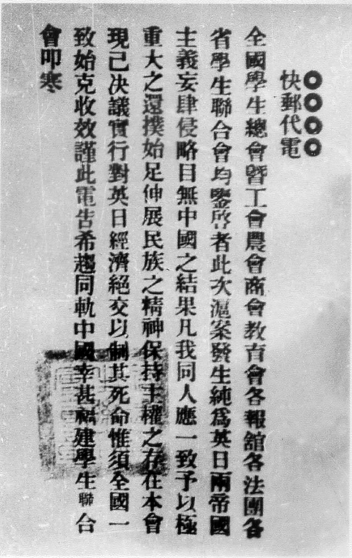 ◎◎◎◎
快郵代電
全國學生總會暨工會農會商會教育會各報舘各法團各
省學生聯合會均鑒啓者此次滬案發生純爲英日兩帝國
主義妄肆侵略目無中國之結果凡我同人應一致予以極
重大之還撲始足伸展民族之精神保持主權之存在本會
現已决議實行對英日經濟絕交以制其死命惟須全國一
致始克收效謹此電告希趨同軌中國幸甚福建學生聯合
會叩寒